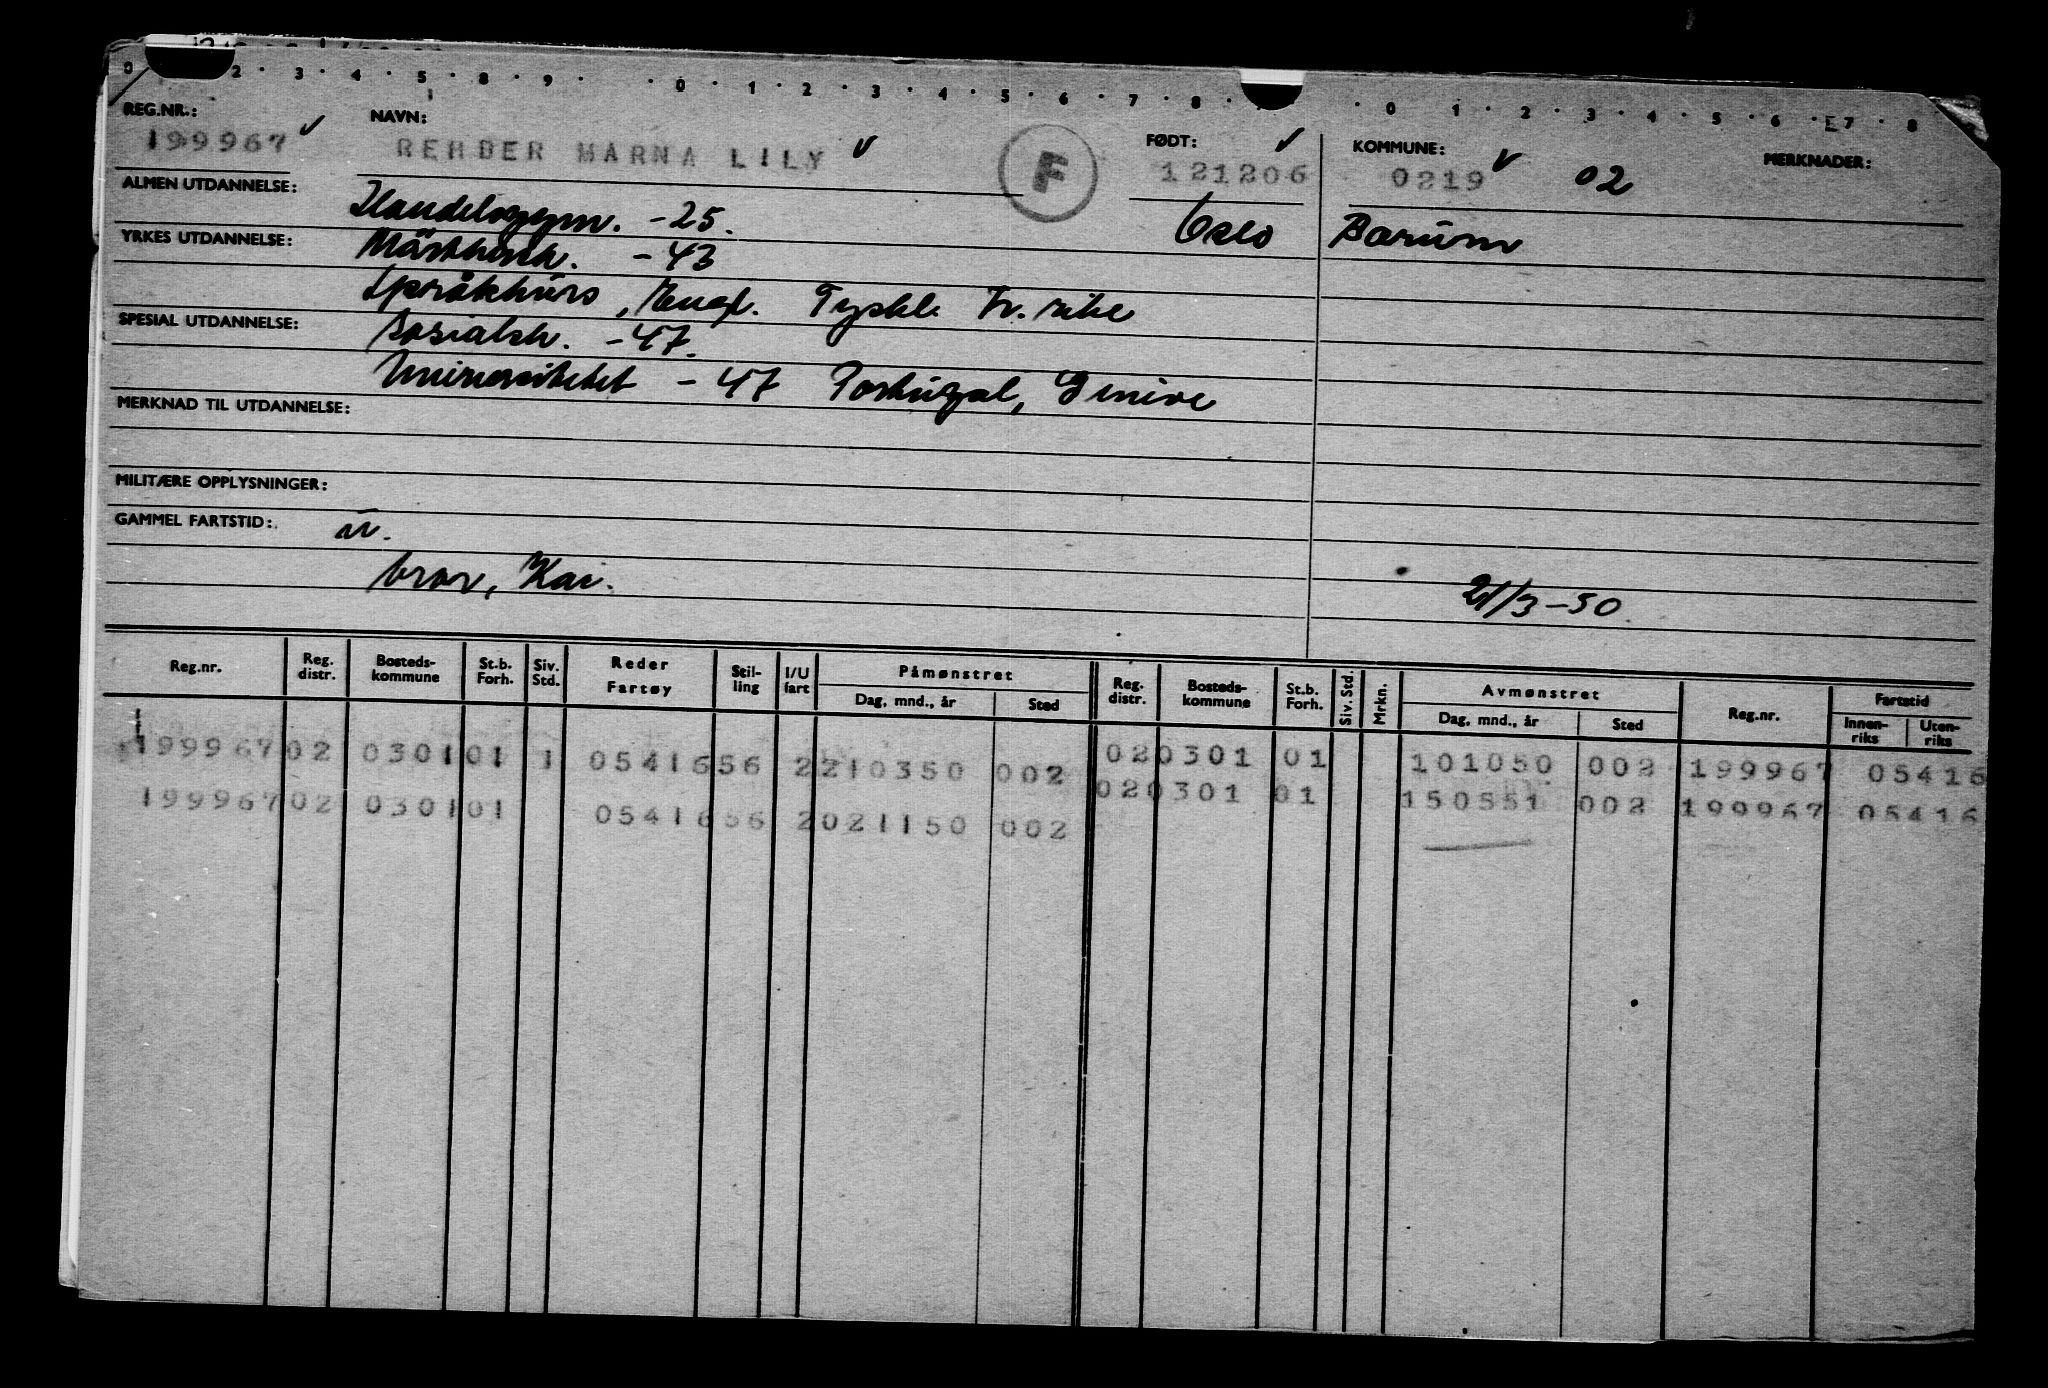 0 2 · 3 · 4 · 5 · 8 · 9 · · 0 · 1 · 2 · 3 · 4 · 5 · 6 · 7 · 8 · · 0 · 1 · 2 · 3 · 4 · 5 · 6 · E7 · 8
REG.NR.: NAVN: FØDT: KOMMUNE: MERKNADER:
199967 REHDER MARNA LILY F 121206 0219 02
ALMEN UTDANNELSE: Handelsgym. -25. Oslo Bærum
YRKES UTDANNELSE: -43
Språkkurs, Engl. Tyskl. Fr. rike
SPESIAL UTDANNELSE: Sosialsk. -47.
Universitetet - 47 Portugal, Geneve
MERKNAD TIL UTDANNELSE:
MILITÆRE OPPLYSNINGER:
GAMMEL FARTSTID:
bror, Kai. 21/3-50
Reg.nr. Reg. distr. Bosteds-kommune St.b. Forh. Siv. Std. Reder Fartøy Stil-ling I/U fart Påmønstret Reg. distr. Bosteds-kommune St.b. Forh. Siv. Std. Mrkn. Avmønstret Reg.nr. Fartstid
Dag, mnd., år Sted Dag, mnd., år Sted Innen-riks Uten-riks
199967 02 0301 01 1 05416 56 2 210350 002 02 0301 01 101050 002 199967 05416
199967 02 0301 01 05416 56 2 021150 002 02 0301 01 150551 002 199967 05416